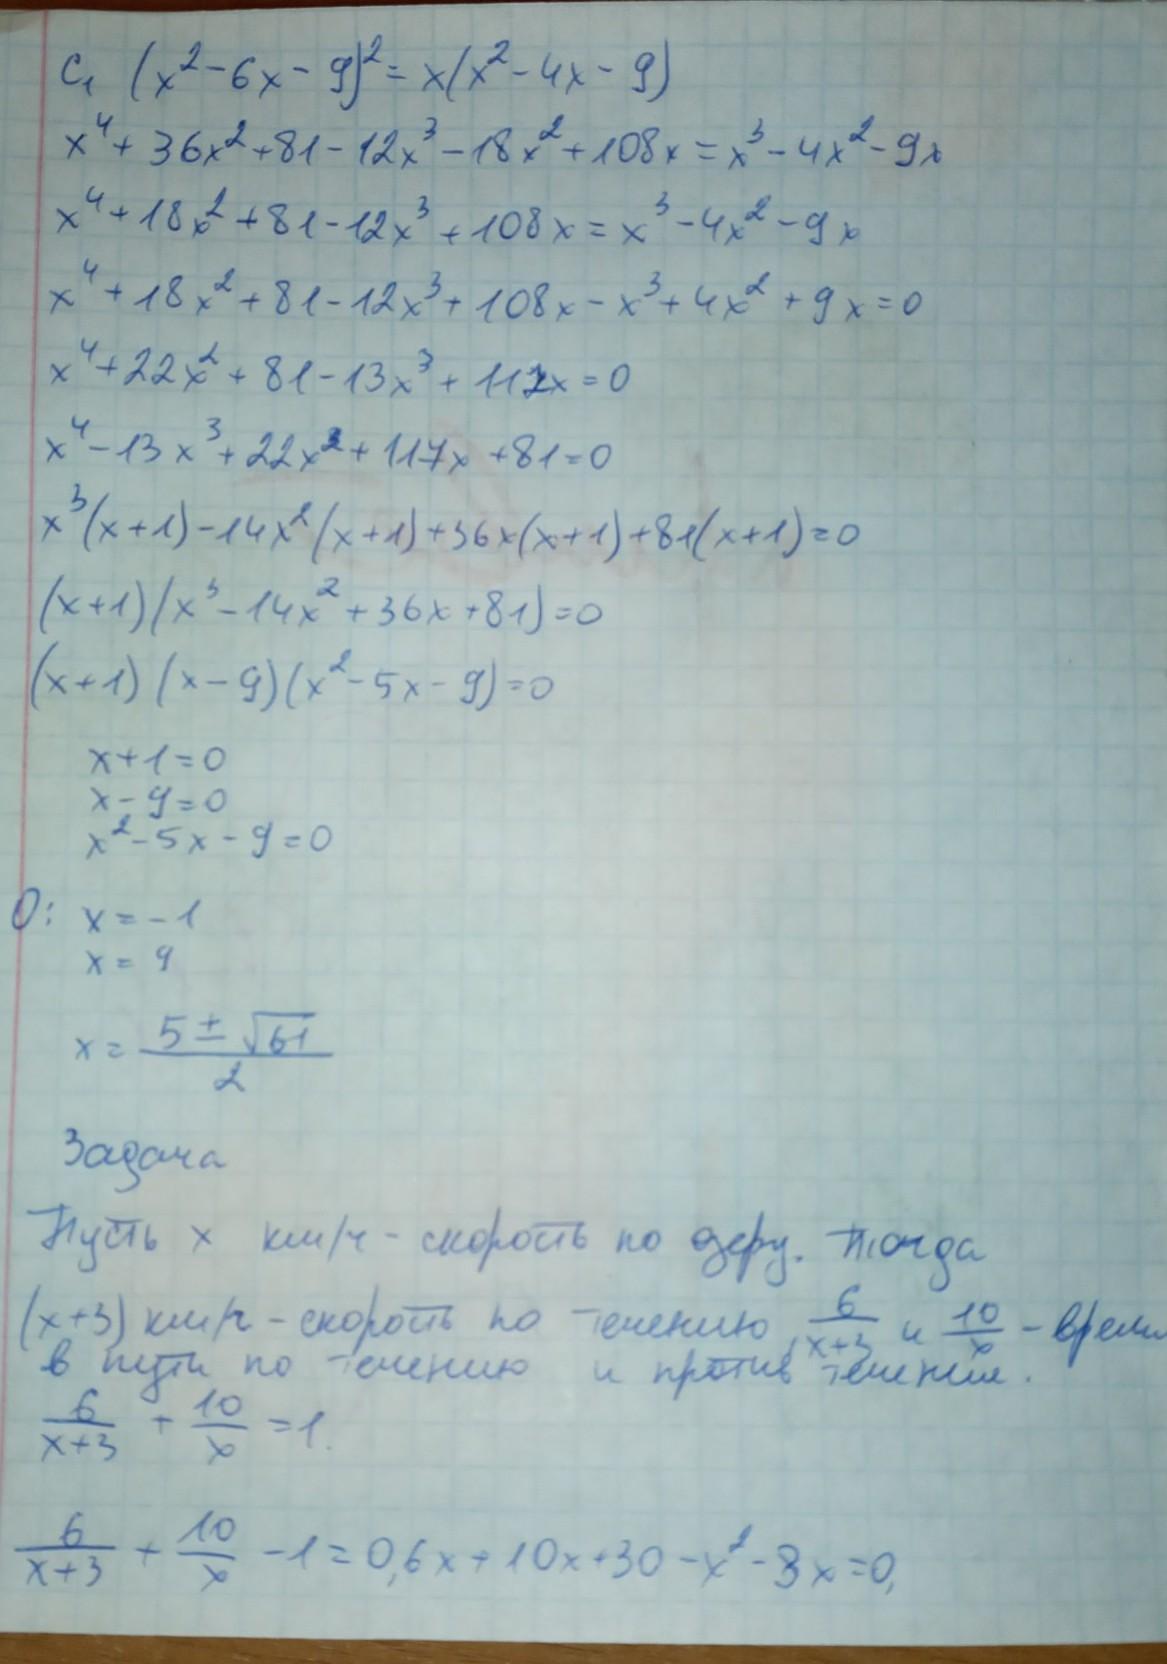 C₁ (x²-6x-9)²=x(x²-4x-9)
x⁴+36x²+81-12x³-18x²+108x=x³-4x²-9x
x⁴+18x²+81-12x³+108x=x³-4x²-9x
x⁴+18x²+81-12x³+108x-x³+4x²+9x=0
x⁴+22x²+81-13x³+117x=0
x⁴-13x³+22x²+117x+81=0
x³(x+1)-14x²(x+1)+36x(x+1)+81(x+1)=0
(x+1)(x³-14x²+36x+81)=0
(x+1)(x-9)(x²-5x-9)=0
x+1=0
x-9=0
x²-5x-9=0
О: x=-1
x=9
x=(5±√61)/2
Задача
Пусть x км/ч - скорость по озеру. Тогда
(x+3) км/ч - скорость по течению, 6/(x+3) и 10/x - время
в пути по течению и против течения.
6/(x+3) + 10/x = 1.
6/(x+3) + 10/x - 1 = 0, 6x+10x+30-x²-3x=0,